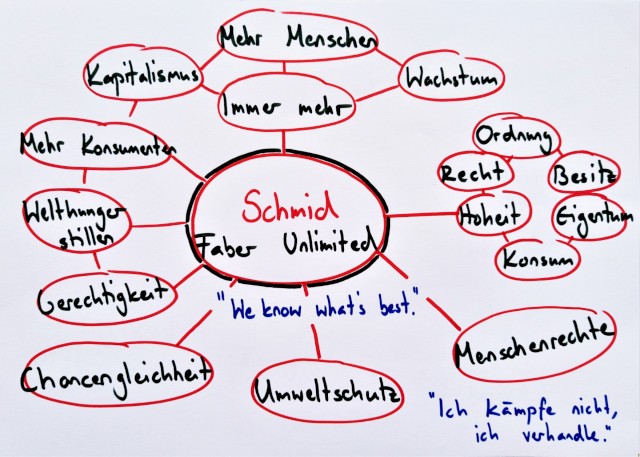 Mehr Menschen
Kapitalismus
Wachstum
Immer mehr
Mehr Konsumenten
Ordnung
Recht
Besitz
Welthunger
stillen
Schmid
Faber Unlimited
Hoheit
Eigentum
Konsum
Gerechtigkeit
"We know what's best."
Chancengleichheit
Umweltschutz
Menschenrechte
"Ich kämpfe nicht,
ich verhandle."